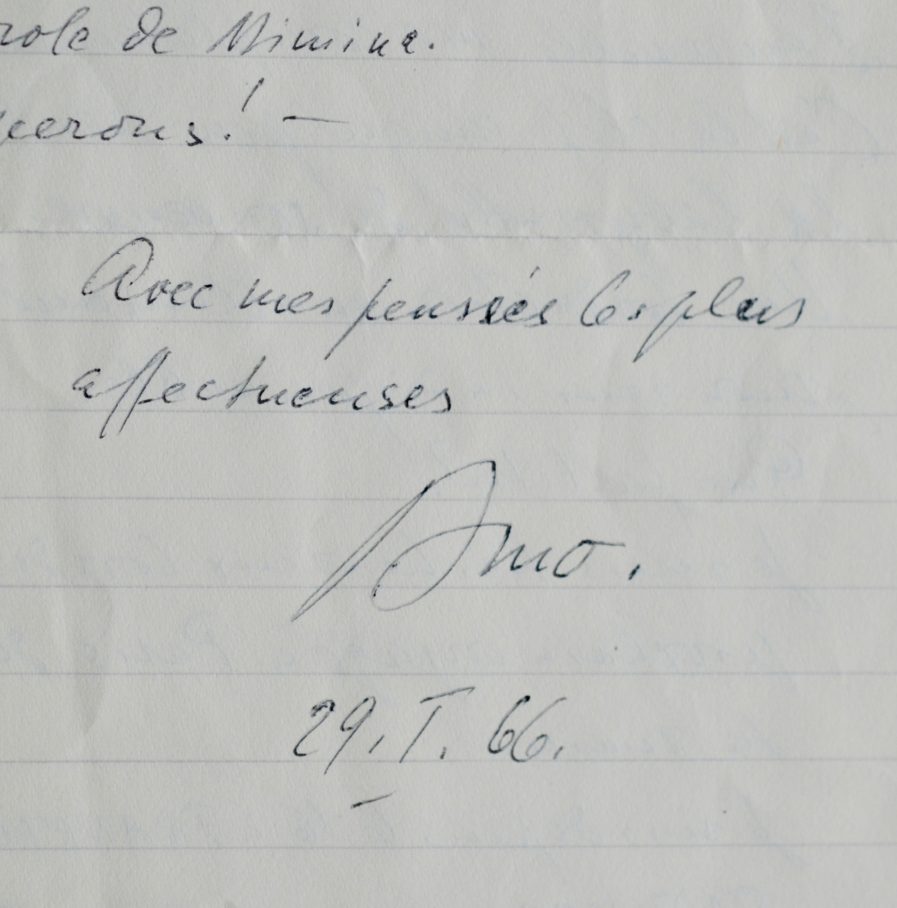 role de Mimina.
perons! —
Avec mes pensées les plus
affectueuses
Arno.
29.I.66.